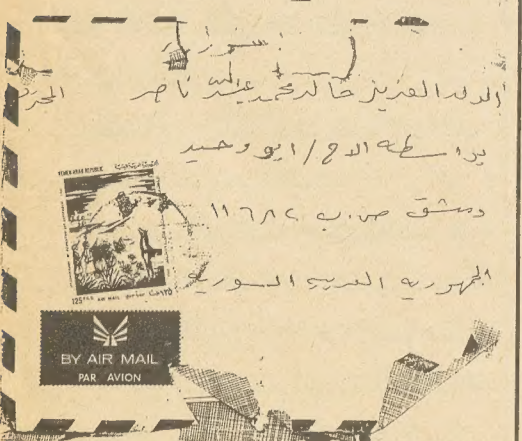 الولد العزيز خالد محمد عبدالله ناصر
بواسطه الاخ / ابو وحيد
دمشق ص.ب ١١٦٨٢
الجمهوريه العربيه السوريه
YEMEN ARAB REPUBLIC
125 FILS AIR MAIL
BY AIR MAIL
PAR AVION